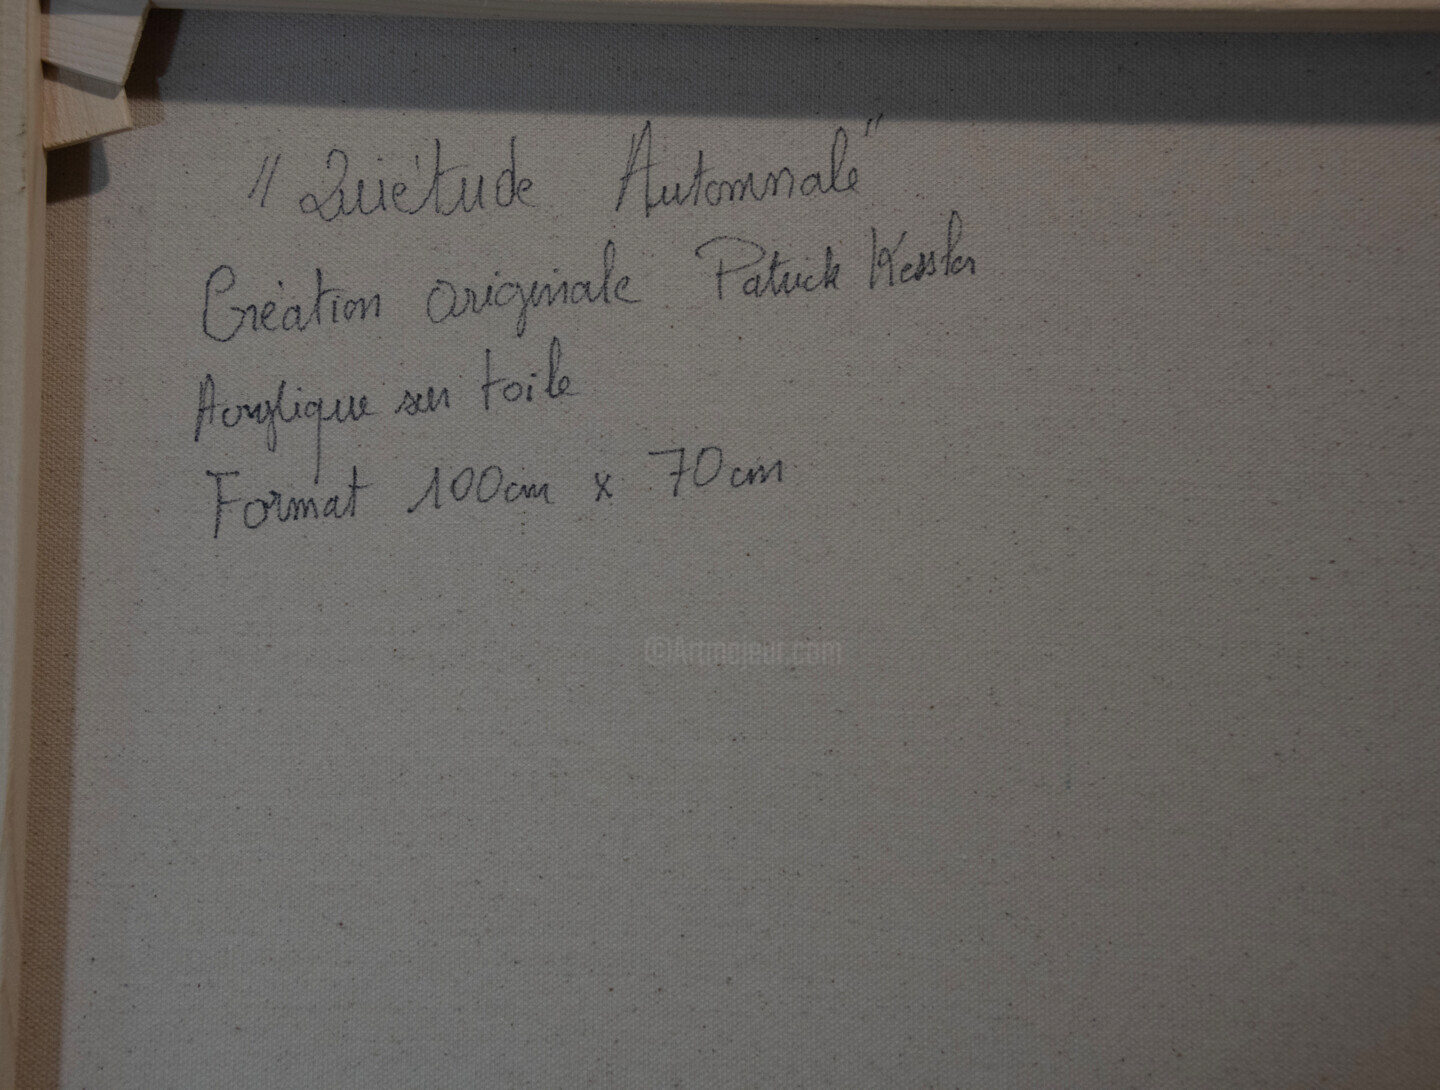 "Quiétude Automnale"
Création originale Patrick Kessler
Acrylique sur toile
Format 100cm x 70cm
©Artmajeur.com